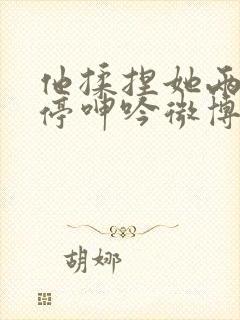 他揉捏她两
停呻吟微博
胡娜